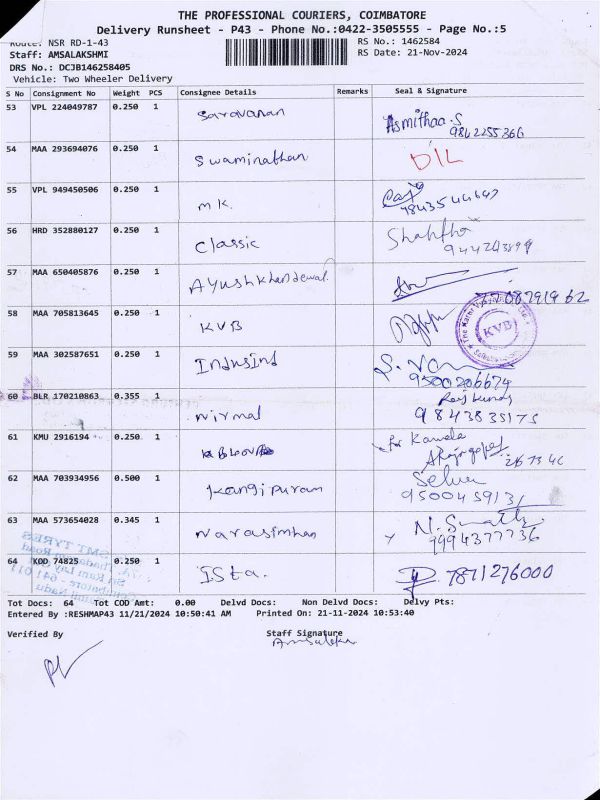 THE PROFESSIONAL COURIERS, COIMBATORE
Delivery Runsheet - P43 - Phone No.:0422-3505555 - Page No.:5
Route: NSR RD-1-43 RS No.: 1462584
Staff: AMSALAKSHMI RS Date: 21-Nov-2024
DRS No.: DCJB146258405
Vehicle: Two Wheeler Delivery
S No Consignment No Weight PCS Consignee Details Remarks Seal & Signature
53 VPL 224049787 0.250 1 Saravanan Asmithaa.S
9842255366
54 MAA 293694076 0.250 1 Swaminathan D/L
55 VPL 949450506 0.250 1 M.K.
56 HRD 352880127 0.250 1 Classic
57 MAA 650405876 0.250 1 Ayushkhandewal
58 MAA 705813645 0.250 1 KVB KVB
59 MAA 302587651 0.250 1 IndusInd
9500206674
60 BLR 170210863 0.355 1 Nirmal
9843835175
61 KMU 2916194 0.250 1 for Kamala
62 MAA 703934956 0.500 1 Kangipuram Selva
63 MAA 573654028 0.345 1 Narasimhan
9994377736
64 KOD 74825 0.250 1 ISta. 7871276000
SMT TYRES
Tot Docs: 64 Tot COD Amt: 0.00 Delvd Docs: Non Delvd Docs: Delvy Pts:
Entered By :RESHMAP43 11/21/2024 10:50:41 AM Printed On: 21-11-2024 10:53:40
Verified By Staff Signature